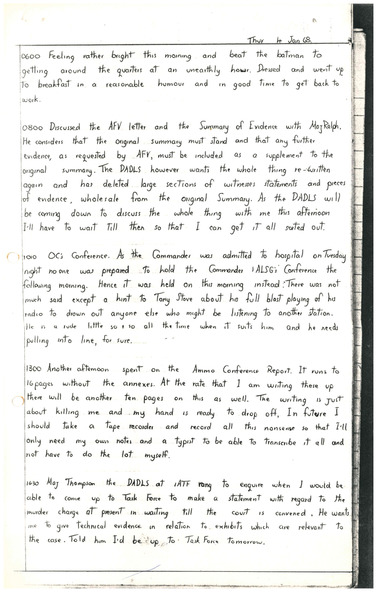 Thur 4 Jan 68.
0600 Feeling rather bright this morning and beat the batman to
getting around the quarters at an unearthly hour. Dressed and went up
to breakfast in a reasonable humour and in good time to get back to
work.
0800 Discussed the AFV letter and the Summary of Evidence with Maj Ralph.
He considers that the original summary must stand and that any further
evidence, as requested by AFV, must be included as a supplement to the
original summary. The DADLS however wants the whole thing re-written
again and has deleted large sections of witnesses statements and pieces
of evidence, wholesale from the original Summary. As the DADLS will
be coming down to discuss the whole thing with me this afternoon
I'll have to wait till then so that I can get it all suited out.
OC's Conference. As the Commander was admitted to hospital on Tuesday
night no one was prepared to hold the Commander 1ALSG's Conference the
following morning. Hence it was held on this morning instead. There was not
much said except a hint to Tony Stove about his full blast playing of his
radio to drown out anyone else who might be listening to another station.
He is a rude little all the time when it suits him and he needs
pulling into line, for sure.
1300 Another afternoon spent on the Ammo Conference Report. It runs to
16 pages without the annexes. At the rate that I am writing these up
there will be another ten pages on this as well. The writing is just
about killing me and my hand is ready to drop off. In future I
should take a tape recorder and record all this nonsense so that I'll
only need my own notes and a typist to be able to transcribe it all and
not have to do the lot myself.
Maj Thompson the DADLS at 1ATF rang to enquire when I would be
able to come up to Task Force to make a statement with regard to the
murder charge at present in waiting till the court is convened. He wants
me to give technical evidence in relation to exhibits which are relevant to
the case. Told him I'd be up to Task Force tomorrow.